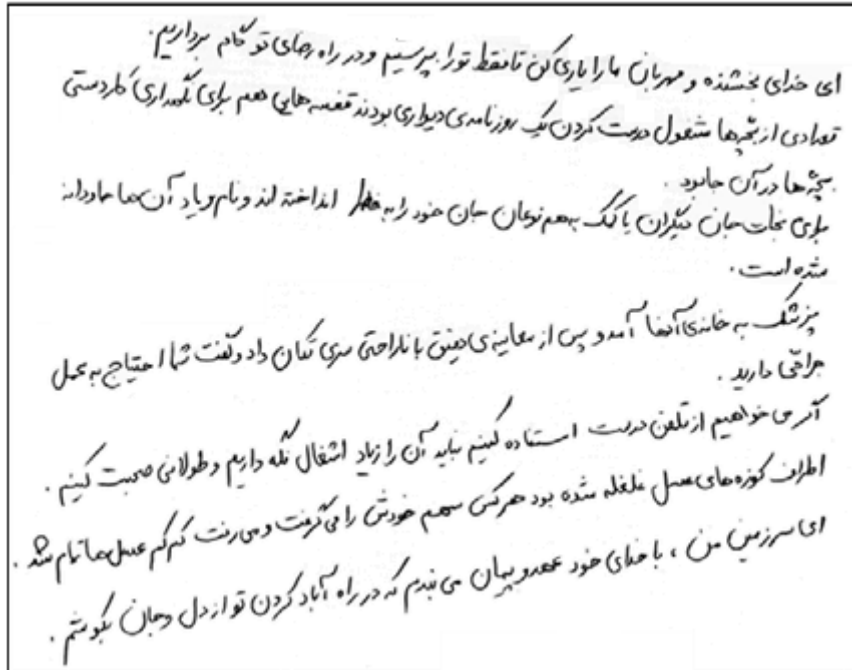 ای خدای بخشنده و مهربان ما را یاری کن تا فقط تو را بپرستیم و در راه رضای تو گام برداریم.
تعدادی از بچه‌ها مشغول درست کردن یک روزنامه‌ی دیواری بودند قفسه‌هایی هم برای نگهداری کاردستی
بچه‌ها در آن جا بود.
برای نجات جان دیگران یا کمک به هم نوعان جان خود را به خطر انداخته اند و نام و یاد آن‌ها جاودانه
شده است.
پزشک به خانه‌ی آنها آمد و پس از معاینه‌ی دقیق با ناراحتی سری تکان داد و گفت شما احتیاج به عمل
جراحی دارید.
اگر می خواهیم از تلفن درست استفاده کنیم نباید آن را زیاد اشغال نگه داریم و طولانی صحبت کنیم.
اطراف کوزه‌های عسل غلغله شده بود هر کس سهم خودش را می‌گرفت و می‌رفت کم کم عسل‌ها تمام شد.
ای سرزمین من، با خدای خود عهد و پیمان می بندم که در راه آباد کردن تو از دل و جان بکوشم.